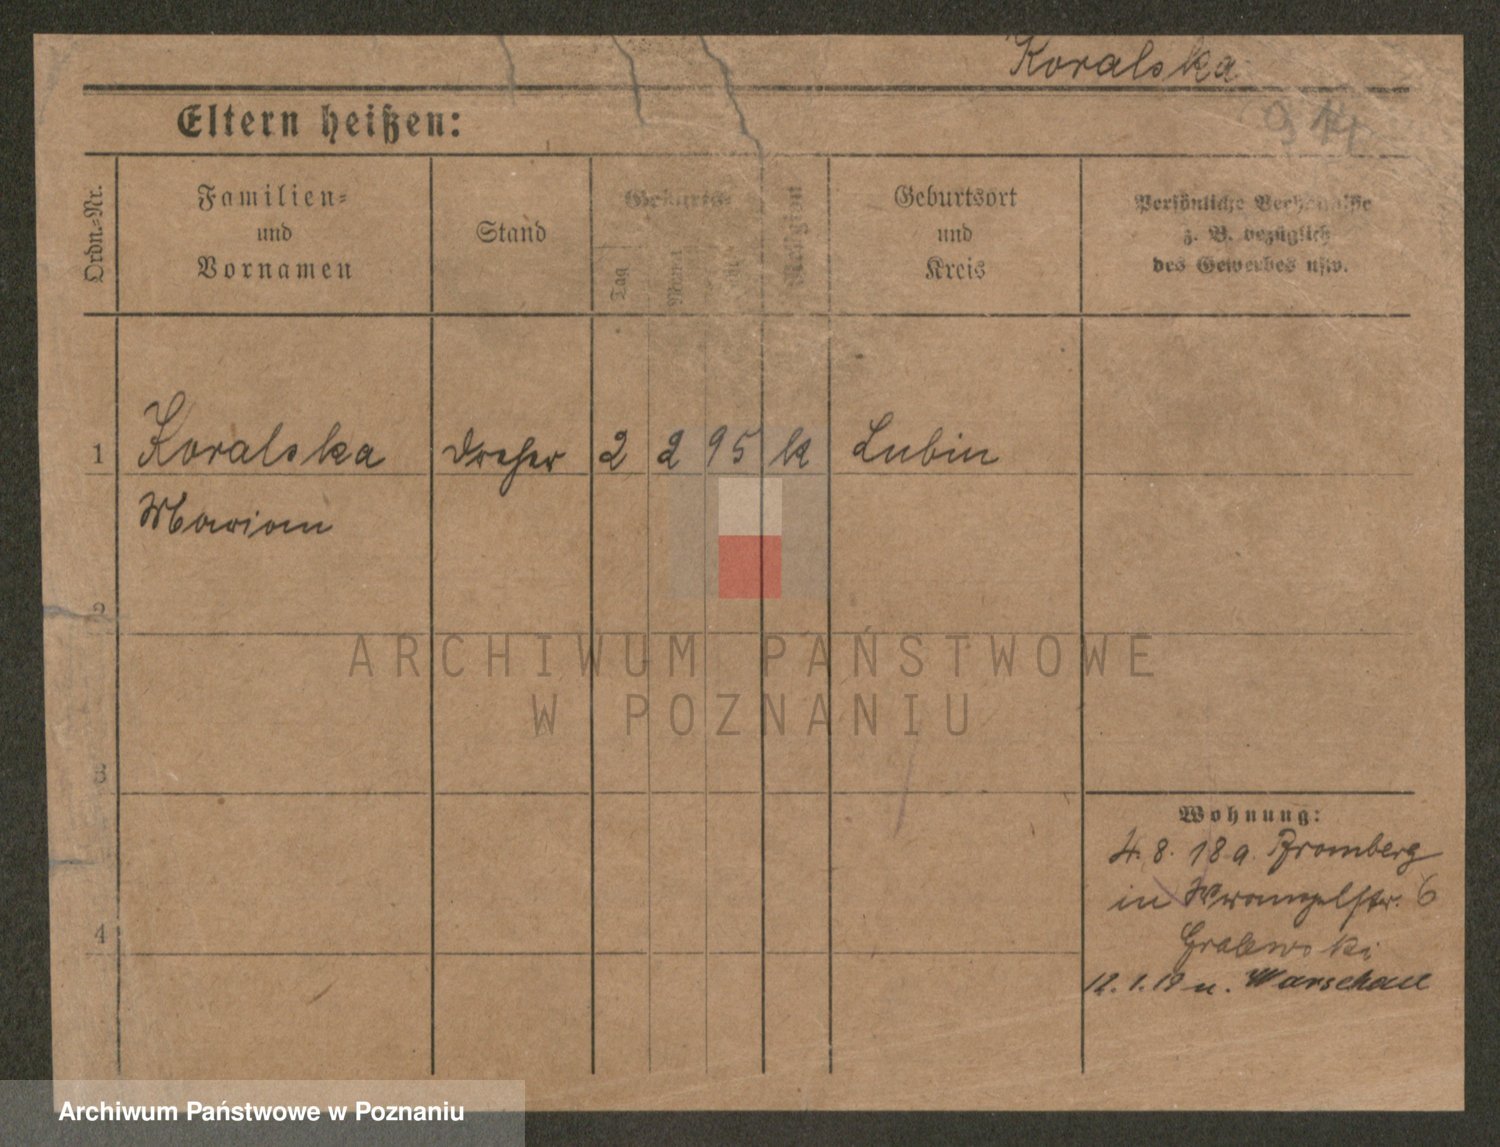 Koralska
Eltern heißen:
Ordn.-Nr.
Familien-
und
Vornamen
Stand
Geburts-
Tag
Monat
Religion
Geburtsort
und
Kreis
Persönliche Verhältnisse
z. B. bezüglich
des Gewerbes usw.
1 Koralska Dreher 2 2 95 k Lubin
Marian
2
ARCHIWUM PAŃSTWOWE
W POZNANIU
3
Wohnung:
4.8.18 a. Bromberg
in Wrangelstr. 6
4
Grabowski
12.1.19 n. Warschau
Archiwum Państwowe w Poznaniu